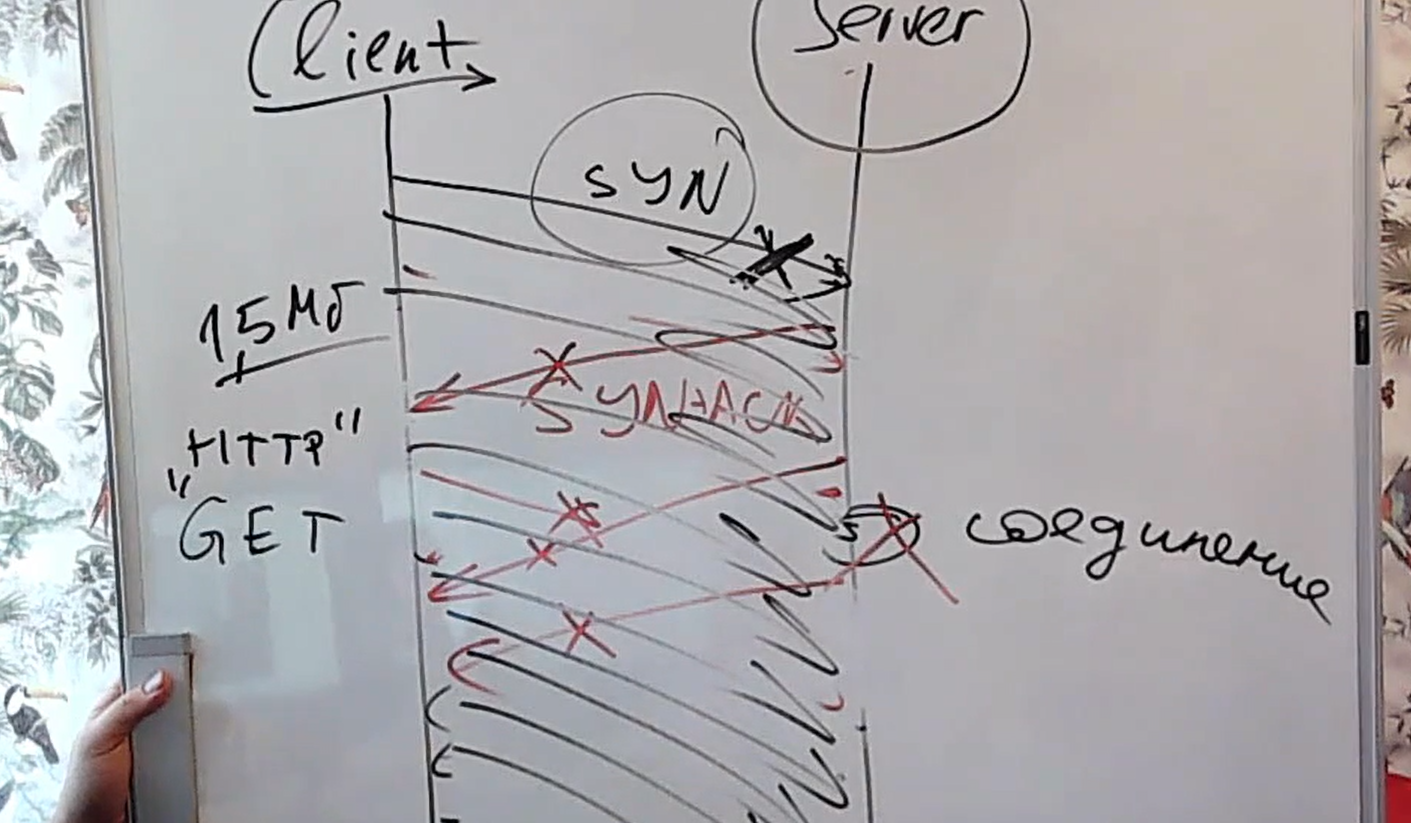 Client
Server
SYN
15Мб
SYN+ACK
"HTTP"
"GET
соединение